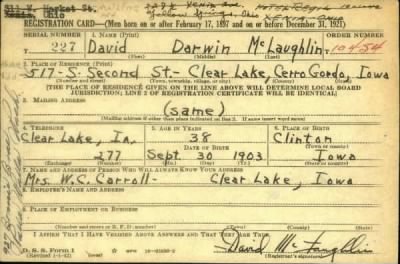 311 W. Market St.
Xenia, Ohio
Yellow Springs, Ohio
XENIA OHIO
REGISTRATION CARD—(Men born on or after February 17, 1897 and on or before December 31, 1921)
SERIAL NUMBER
1. NAME (Print)
ORDER NUMBER
227
David Darwin McLaughlin
10454
(First) (Middle) (Last)
2. PLACE OF RESIDENCE (Print)
517-S. Second St.- Clear Lake, Cerro Gordo, Iowa
(Number and street) (Town, township, village, or city) (County) (State)
[THE PLACE OF RESIDENCE GIVEN ON THE LINE ABOVE WILL DETERMINE LOCAL BOARD
JURISDICTION; LINE 2 OF REGISTRATION CERTIFICATE WILL BE IDENTICAL]
3. MAILING ADDRESS
(same)
[Mailing address if other than place indicated on line 2. If same insert word same]
4. TELEPHONE
5. AGE IN YEARS
6. PLACE OF BIRTH
Clear Lake, Ia.
38
Clinton
DATE OF BIRTH
(Town or county)
277
Sept. 30 1903
Iowa
(Exchange) (Number)
(Mo.) (Day) (Yr.)
(State or country)
7. NAME AND ADDRESS OF PERSON WHO WILL ALWAYS KNOW YOUR ADDRESS
Mrs. W.C. Carroll- Clear Lake, Iowa
8. EMPLOYER'S NAME AND ADDRESS
9. PLACE OF EMPLOYMENT OR BUSINESS
(Number and street or R. F. D. number) (Town) (County) (State)
I AFFIRM THAT I HAVE VERIFIED ABOVE ANSWERS AND THAT THEY ARE TRUE.
D. S. S. Form 1
(Revised 1-1-42)
(over)
David McLaughlin
(Registrant's signature)